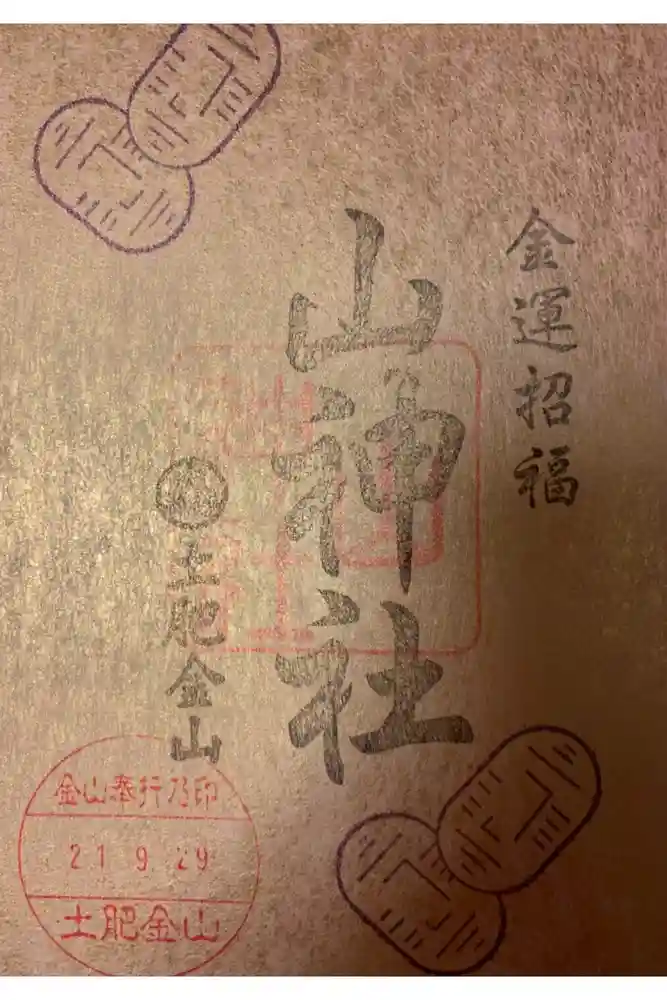 金運招福
山神社
土肥金山
金山奉行乃印
21.9.29
土肥金山